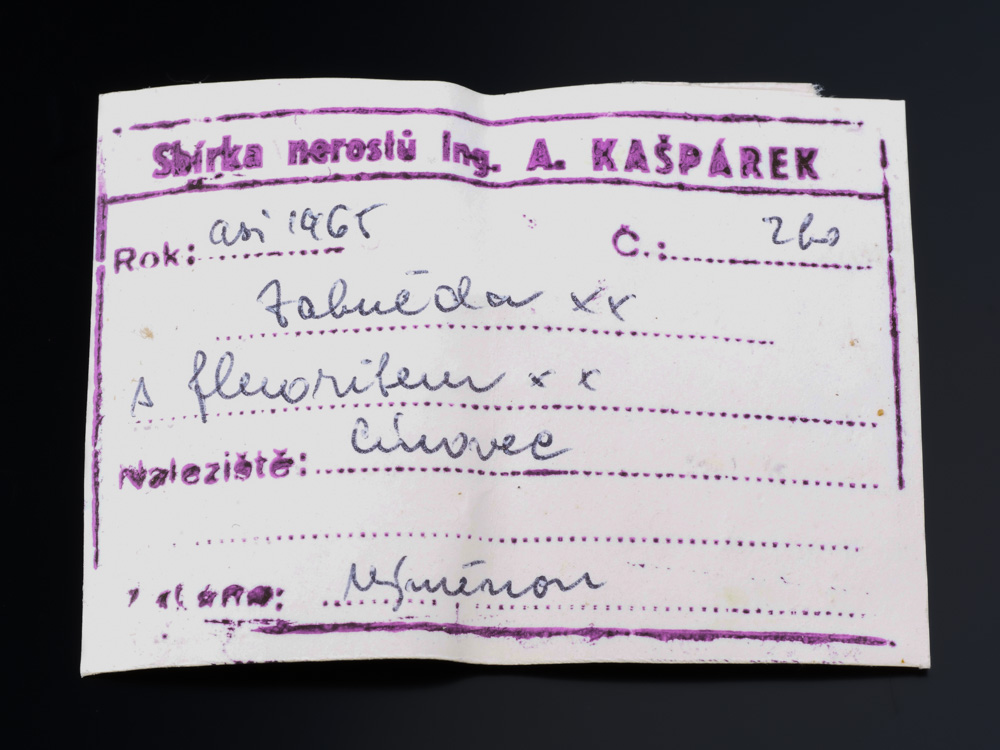 Sbírka nerostů Ing. A. KAŠPÁREK
Rok: asi 1965 Č.: 260
Záhněda xx
s fluoritem xx
Naleziště: Cínovec
výměnou